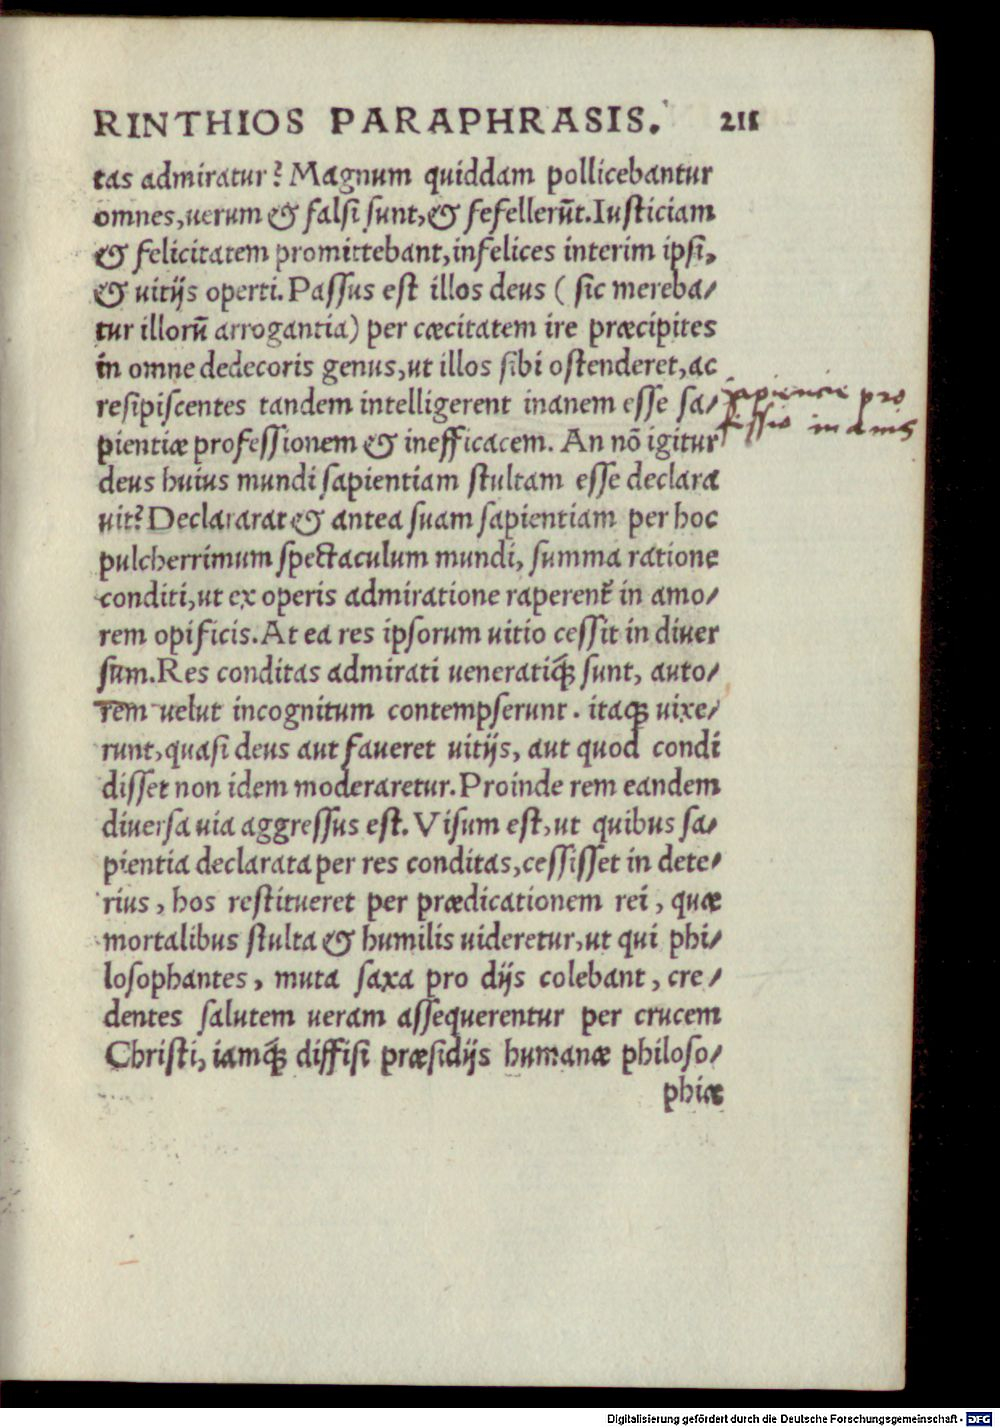 RINTHIOS PARAPHRASIS. 211
tas admiratur? Magnum quiddam pollicebantur
omnes, uerum & falsi sunt, & fefellerūt. Iusticiam
& felicitatem promittebant, infelices interim ipsi,
& uitijs operti. Passus est illos deus (sic mereba/
tur illorū arrogantia) per cæcitatem ire præcipites
in omne dedecoris genus, ut illos sibi ostenderet, ac
resipiscentes tandem intelligerent inanem esse sa/
pientiæ professionem & inefficacem. An nō igitur
deus huius mundi sapientiam stultam esse declara
uit? Declararat & antea suam sapientiam per hoc
pulcherrimum spectaculum mundi, summa ratione
conditi, ut ex operis admiratione raperent᷑ in amo/
rem opificis. At ea res ipsorum uitio cessit in diuer
sum. Res conditas admirati ueneratiq́ꝫ sunt, auto/
rem uelut incognitum contempserunt. itaqꝫ uixe/
runt, quasi deus aut faueret uitijs, aut quod condi
disset non idem moderaretur. Proinde rem eandem
diuersa uia aggressus est. Visum est, ut quibus sa/
pientia declarata per res conditas, cessisset in dete/
rius, hos restitueret per prædicationem rei, quæ
mortalibus stulta & humilis uideretur, ut qui phi/
losophantes, muta saxa pro dijs colebant, cre/
dentes salutem ueram assequerentur per crucem
Christi, iamq́ꝫ diffisi præsidijs humanæ philoso/
phiæ
sapiencie pro
fessio inanis
Digitalisierung gefördert durch die Deutsche Forschungsgemeinschaft - DFG